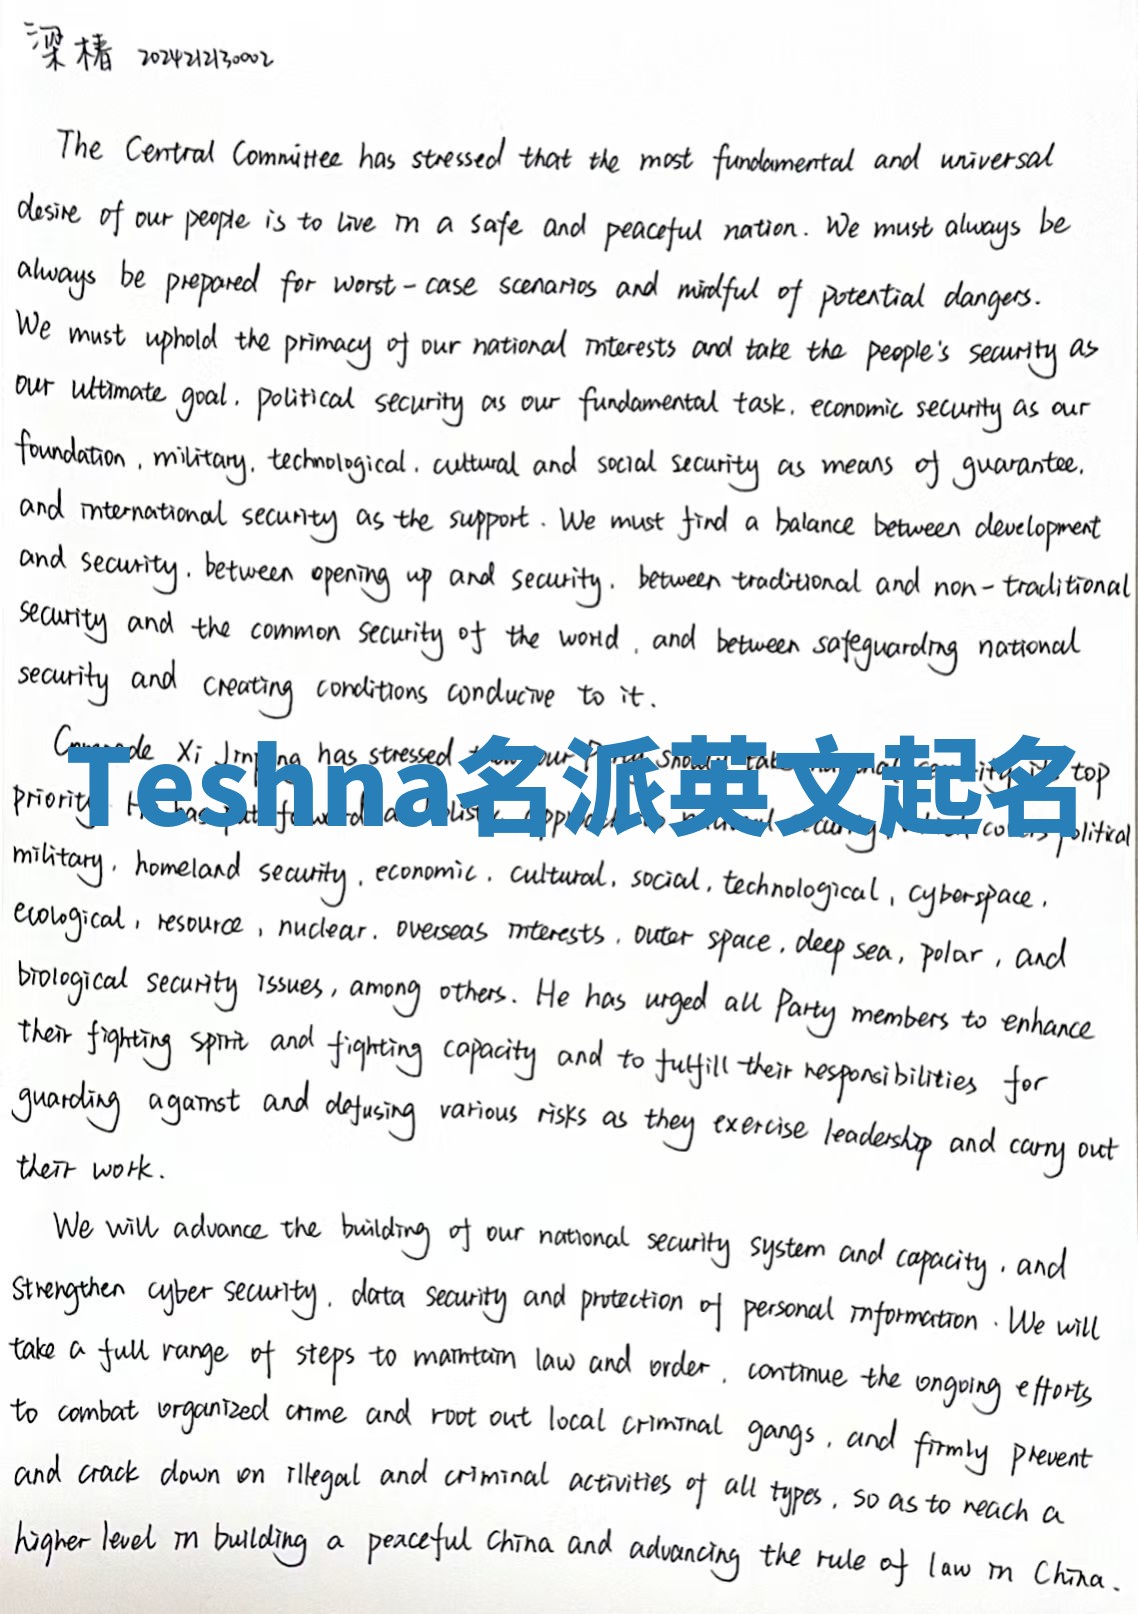 梁椿 2024212130002
The Central Committee has stressed that the most fundamental and universal
desire of our people is to live in a safe and peaceful nation. We must always be
always be prepared for worst-case scenarios and mindful of potential dangers.
We must uphold the primacy of our national interests and take the people's security as
our ultimate goal, political security as our fundamental task, economic security as our
foundation, military, technological, cultural and social security as means of guarantee,
and international security as the support. We must find a balance between development
and security, between opening up and security, between traditional and non-traditional
security and the common security of the world, and between safeguarding national
security and creating conditions conducive to it.
Comrade Xi Jinping has stressed our top
Teshna名派英文起名
priority. political
military, homeland security, economic, cultural, social, technological, cyberspace,
ecological, resource, nuclear, overseas interests, outer space, deep sea, polar, and
biological security issues, among others. He has urged all Party members to enhance
their fighting spirit and fighting capacity and to fulfill their responsibilities for
guarding against and defusing various risks as they exercise leadership and carry out
their work.
We will advance the building of our national security system and capacity, and
strengthen cyber security, data security and protection of personal information. We will
take a full range of steps to maintain law and order, continue the ongoing efforts
to combat organized crime and root out local criminal gangs, and firmly prevent
and crack down on illegal and criminal activities of all types, so as to reach a
higher level in building a peaceful China and advancing the rule of law in China.